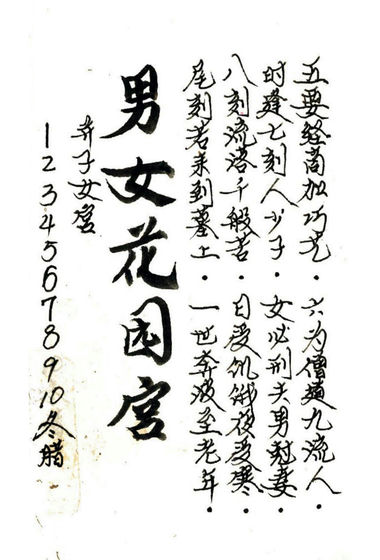 五要经商加巧艺·六为僧道九流人·
时逢七刻人少子·女必刑夫男尅妻
八刻流落千般苦·日受饥饿夜受寒·
尾刻若来到墓上·一世奔波至老年·
男女花园宫
弃子女宫
1 2 3 4 5 6 7 8 9 10 冬腊